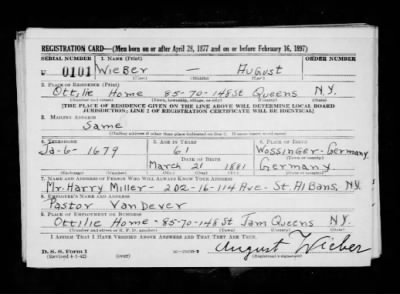 REGISTRATION CARD—(Men born on or after April 28, 1877 and on or before February 16, 1897)
SERIAL NUMBER 1. NAME (Print) ORDER NUMBER
U 0101 Wieber — August
(Last) (First) (Middle)
2. PLACE OF RESIDENCE (Print)
Ottilie Home 85-70-148 St Queens N.Y.
(Number and street) (Town, township, village, or city) (County) (State)
[THE PLACE OF RESIDENCE GIVEN ON THE LINE ABOVE WILL DETERMINE LOCAL BOARD JURISDICTION; LINE 2 OF REGISTRATION CERTIFICATE WILL BE IDENTICAL]
3. MAILING ADDRESS
Same
(Mailing address if other than place indicated on line 2. If same insert word same)
4. TELEPHONE 5. AGE IN YEARS 6. PLACE OF BIRTH
Ja-6-1679 61 Wossinger-Germany
DATE OF BIRTH (Town or county)
March 21 1881 Germany
(Mo.) (Day) (Yr.) (State or country)
7. NAME AND ADDRESS OF PERSON WHO WILL ALWAYS KNOW YOUR ADDRESS
Mr. Harry Miller - 202-16-114 Ave. St. Albans, N.Y.
8. EMPLOYER'S NAME AND ADDRESS
Pastor Van Dever
9. PLACE OF EMPLOYMENT OR BUSINESS
Ottilie Home - 85-70-148 St Jam Queens N.Y.
(Number and street or R. F. D. number) (Town) (County) (State)
I AFFIRM THAT I HAVE VERIFIED ABOVE ANSWERS AND THAT THEY ARE TRUE.
D. S. S. Form 1
(Revised 4-1-42) (over)
August Wieber